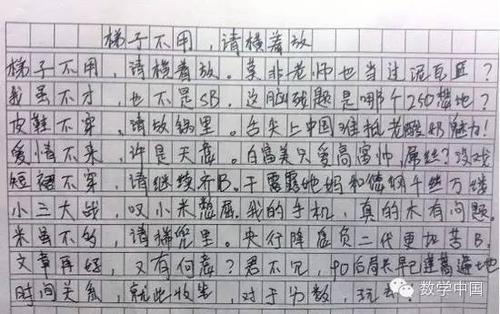 梯子不用，请横着放
梯子不用，请横着放。莫非老师也当过泥瓦匠？
我虽不才，也不是SB，这脑残题是哪个250想地？
皮鞋不穿，请放锅里。舌尖上中国难抵老酸奶魅力！
爱情不来，许是天意。白富美只爱高富帅，屌丝？没戏
短裙不穿，请继续齐B。干露露她妈和德纲千丝万缕
小三大战，叹小米憋屈。我的手机，真的木有问题
米虽不多，请揣兜里。央行降息负二代更加苦B。
文章再好，又有何意？君不见，90后局长早已遍地
时间关系，就此收笔，对于分数，玩去
数学中国